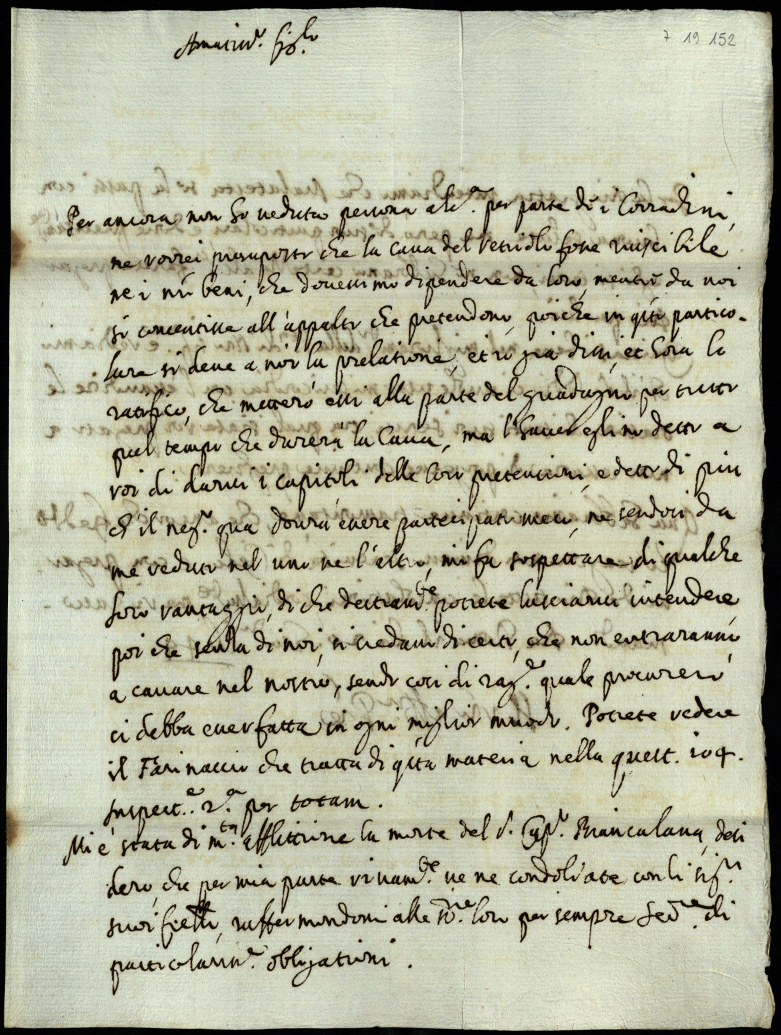 7 19 152
Amatiss.º fig.lo
Per ancora non hò veduta persona alc.ª per parte de i Corradini,
ne vorrei presupostr che la cava del vetriolo fosse riuscibile
ne i miei beni, che dovessimo dipendere da loro, mentre da noi
si consentisse all'appalto che pretendono, poiche in q.to partico-
lare si deve a noi la prelatione, et io già dissi, et hora lo
ratifico, che metterò essi alla parte del guadagno per tutto
quel tempo che durerà la Cava, ma l'haver eglino detto a
voi di darvi i capitoli delle loro pretensioni, e detto di piu
ch'il neg.º quà dovrà essere participato meco, ne sendosi da
me veduto nel uno ne l'altro, mi fa sospettare di qualche
loro vantaggio, di che destram.te potrete lasciarvi intendere
poi che senza di noi, si credano di certo, che non entraranno
a cavare nel nostro, sendo così di rag.e quale procurerò
ci debba esser fatta in ogni miglior modo. Potrete vedere
il Farinaccio che tratta di q.ta materia nella quest. 104.
inspect.e 2.ª per totam.
Mi è stata di m.ta afflittione la morte del S.r Cap.º Brancaleoni, desi
dero, che per mia parte vivam.te ve ne condoliate con li sig.ri
suoi fratelli, raffermandomi alle S.rie loro per sempre Ser.re di
particolariss.e obligationi.